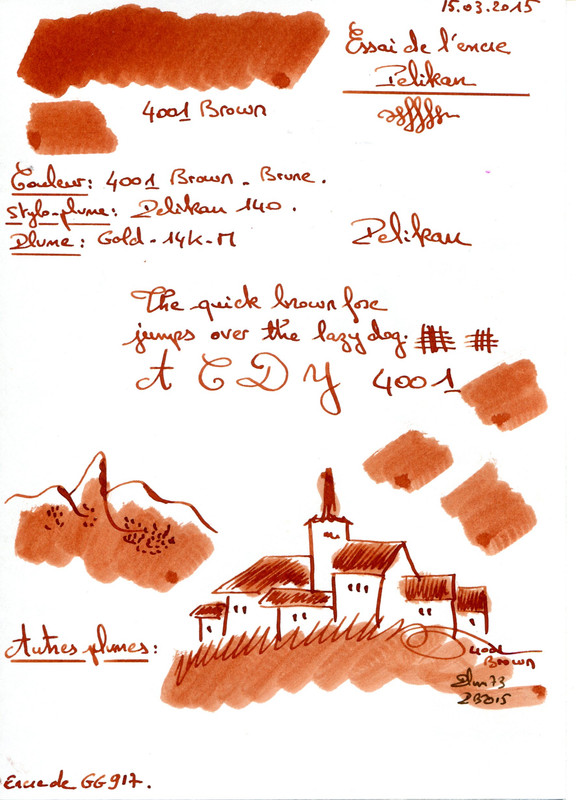 15.03.2015
Essai de l'encre
Pelikan
4001 Brown
Couleur: 4001 Brown - Brune.
Stylo-plume: Pelikan 140.
Plume: Gold-14K-M
Pelikan
The quick brown fox
jumps over the lazy dog.
A C D Y 4001
Autres plumes:
4001
Brown
Encre de GG917.